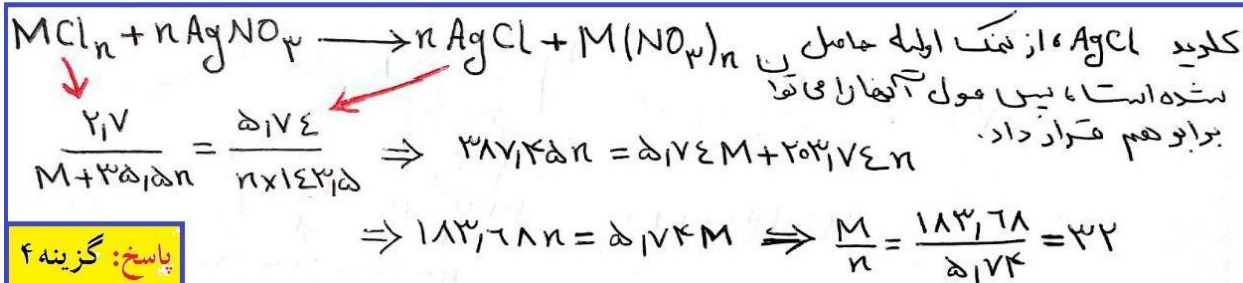 MCl_n + nAgNO_۳ ⟶ nAgCl + M(NO_۳)_n
کلرید AgCl، از نمک اولیه حاصل
شده است، پس مول آنها را می توان
برابر هم قرار داد.
۲,۷ / (M+۳۵,۵n) = ۵,۷٤ / (n×۱٤۳,۵) ⇒ ۳۸۷,۴۵n = ۵,۷٤M + ۲۰۳,۷٤n
⇒ ۱۸۳,٦۸n = ۵,۷۴M ⇒ M/n = ۱۸۳,٦۸ / ۵,۷۴ = ۳۲
پاسخ: گزینه ۴